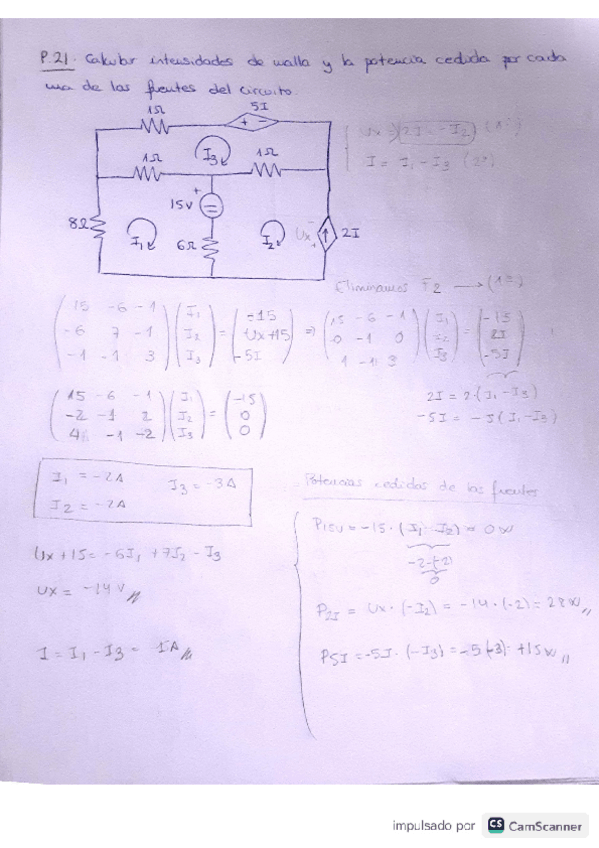 P.21. Calcular intensidades de malla y la potencia cedida por cada
una de las fuentes del circuito.
1Ω
5I
+ -
1Ω
I3
1Ω
15V
+
8Ω
I1
6Ω
I2
Ux
-
+
2I
2I = -I2 (1ª)
I = I1 - I3 (2ª)
Eliminamos I2 → (1ª)
( 15 -6 -1 ) ( I1 ) = ( -15 ) ⇒ ( 15 -6 -1 ) ( I1 ) = ( -15 )
( -6 7 -1 ) ( I2 ) ( Ux+15 ) ( 0 -1 0 ) ( I2 ) ( 2I )
( -1 -1 3 ) ( I3 ) ( -5I ) ( I3 ) ( -5I )
2I = 2·(I1 - I3)
-5I = -5(I1 - I3)
( 15 -6 -1 ) ( I1 ) = ( -15 )
( -2 -1 2 ) ( I2 ) ( 0 )
( 4 -1 -2 ) ( I3 ) ( 0 )
I1 = -2A I3 = -3A
I2 = -2A
Ux + 15 = -6I1 + 7I2 - I3
Ux = -14V
I = I1 - I3 = 1A
Potencias cedidas de las fuentes
P15V = -15·(I1 - I2) = 0W
-2-(-2)
0
P2I = Ux·(-I2) = -14·(-2) = 28W
P5I = -5I·(-I3) = -5(-3) = +15W
impulsado por CS CamScanner